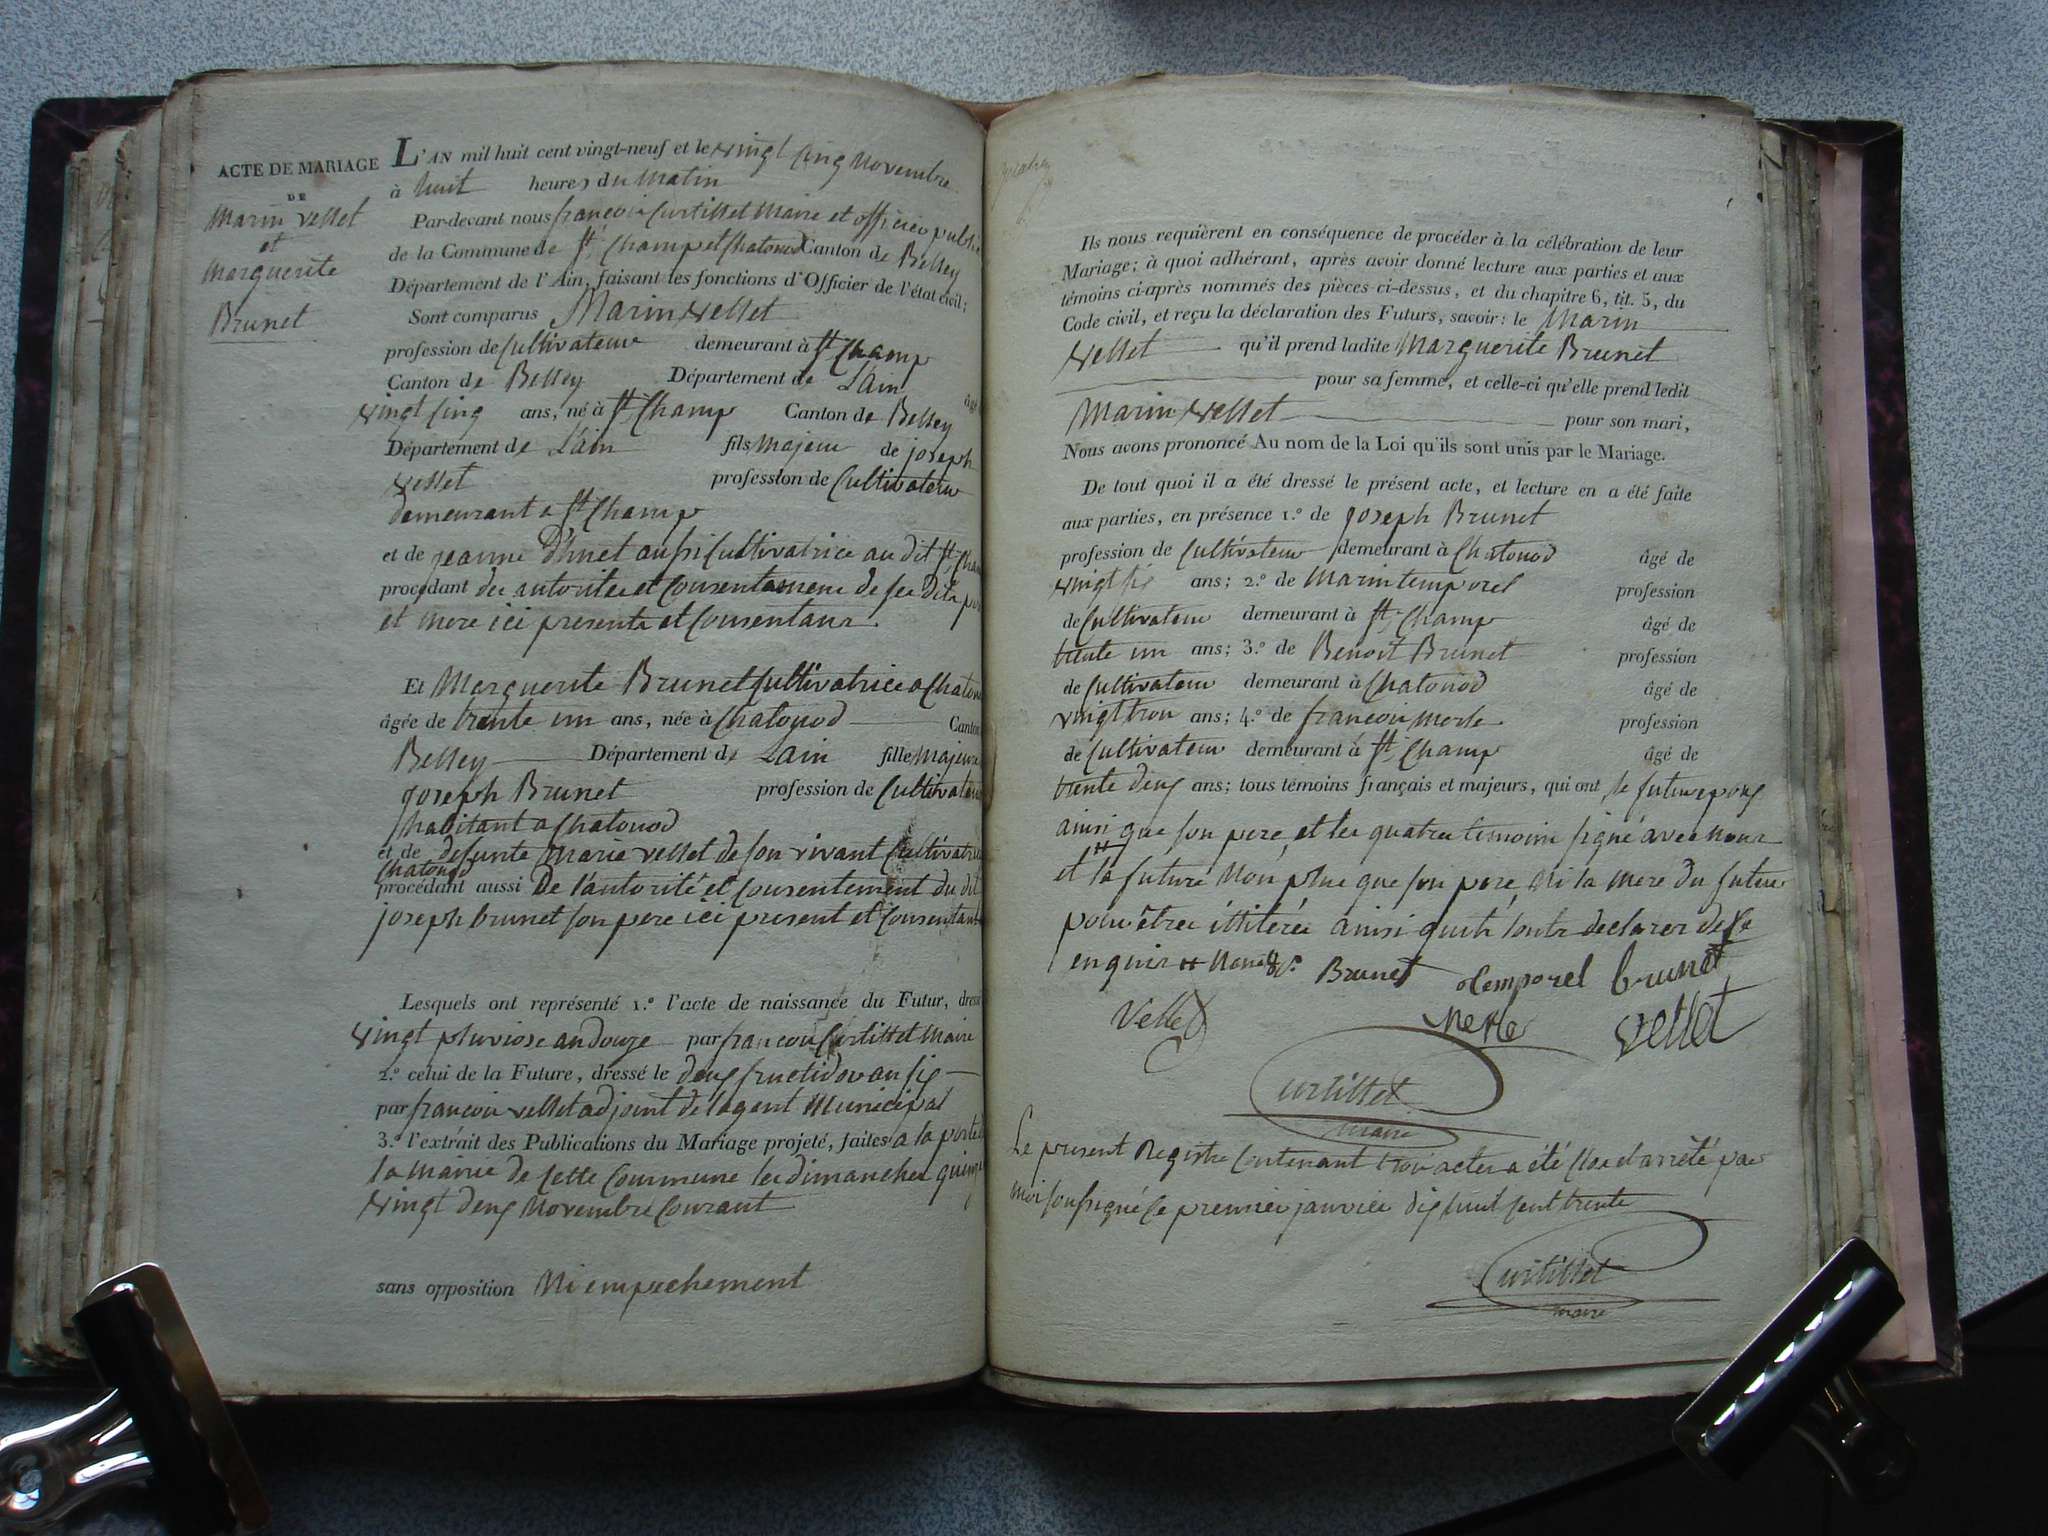 ACTE DE MARIAGE
DE
Marin vellet
et
Marguerite
Brunet
L'AN mil huit cent vingt-neuf et le vingt cinq Novembre
à huit heures du Matin
Par-devant nous françois Curtillet Maire et officier public
de la Commune de St. Champ et Chatonod Canton de Belley
Département de l'Ain, faisant les fonctions d'Officier de l'état civil;
Sont comparus Marin vellet
profession de Cultivateur demeurant à St Champ
Canton de Belley Département de L'ain âgé
vingt cinq ans, né à St Champ Canton de Belley
Département de L'ain fils majeur de joseph
vellet profession de Cultivateur
demeurant a St Champ
et de jeanne aussi Cultivatrice au dit St. Cham
procédant des autorités et Consentement de ses dits
et mere ici presents et Consentans.
Et Marguerite Brunet Cultivatrice a Chatono
âgée de trente un ans, née à Chatonod Canton
Belley Département de Lain fille majeure
joseph Brunet profession de Cultivateur
habitant a Chatonod
et de defunte Marie vellet de son vivant Cultivatrice
Chatonod
procédant aussi De l'autorité et Consentement du dit
joseph brunet son pere ici present et Consentant
Lesquels ont représenté 1.º l'acte de naissance du Futur, dressé
vingt pluviose an douze par françois Curtillet Maire
2.º celui de la Future, dressé le deux fructidor an six
par françois vellet adjoint de l'agent Municipal
3.º l'extrait des Publications du Mariage projeté, faites a la porte d
la mairie de Cette Commune les dimanches quinze
vingt deux Novembre Courant
sans opposition Ni empechement
Ils nous requièrent en conséquence de procéder à la célébration de leur
Mariage; à quoi adhérant, après avoir donné lecture aux parties et aux
témoins ci-après nommés des pièces ci-dessus, et du chapitre 6, tit. 5, du
Code civil, et reçu la déclaration des Futurs, savoir: le Marin
vellet qu'il prend ladite Marguerite Brunet
pour sa femme, et celle-ci qu'elle prend ledit
Marin vellet pour son mari,
Nous avons prononcé Au nom de la Loi qu'ils sont unis par le Mariage.
De tout quoi il a été dressé le présent acte, et lecture en a été faite
aux parties, en présence 1.º de joseph Brunet
profession de Cultivateur demeurant à Chatonod âgé de
vingt six ans; 2.º de Marin temporel profession
de Cultivateur demeurant à St. Champ âgé de
trente un ans; 3.º de Benoit Brunet profession
de Cultivateur demeurant à Chatonod âgé de
vingt trois ans; 4.º de françois merle profession
de Cultivateur demeurant à St. Champ âgé de
trente deux ans; tous témoins français et majeurs, qui ont, le futur epoux
ainsi que son pere, et les quatre temoins signé avec nous
et la future Non plus que son pere, Ni la mere du futur
pour être illitérés ainsi qu'ils l'ont declarer de ce
enquis
Brunet temporel brunet
Vellet Merle vellet
Curtillet
maire
Le present Registre Contenant trois actes a été Clos et arrêté par
moi soussigné ce premier janvier dix huit cent trente
Curtillet
maire